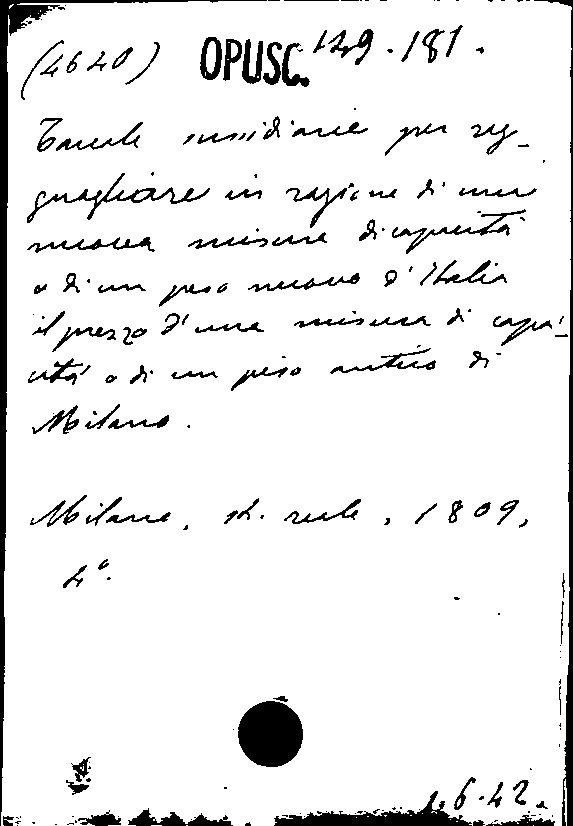 (4640) OPUSC. 149.181.
Tavole sussidiarie per rag-
guagliare in ragione di una
nuova misura di capacità
o di un peso nuovo d'Italia
il prezzo d'una misura di capa-
cità o di un peso antico di
Milano.
Milano, st. reale, 1809,
4°.
6.42.